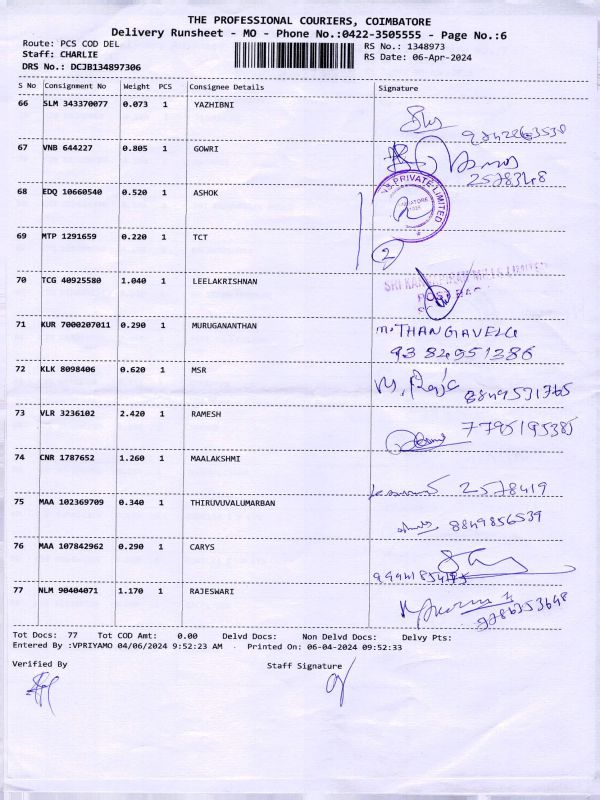 THE PROFESSIONAL COURIERS, COIMBATORE
Delivery Runsheet - MO - Phone No.:0422-3505555 - Page No.:6
Route: PCS COD DEL RS No.: 1348973
Staff: CHARLIE RS Date: 06-Apr-2024
DRS No.: DCJB134897306
S No Consignment No Weight PCS Consignee Details Signature
66 SLM 343370077 0.073 1 YAZHIBNI
67 VNB 644227 0.805 1 GOWRI
2578348
68 EDQ 10660540 0.520 1 ASHOK
PRIVATE LIMITED
2
69 MTP 1291659 0.220 1 TCT
2
70 TCG 40925580 1.040 1 LEELAKRISHNAN
71 KUR 7000207011 0.290 1 MURUGANANTHAN
M. THANGAVELU
93 84951386
72 KLK 8098406 0.620 1 MSR
M. Raja 8849531765
73 VLR 3236102 2.420 1 RAMESH
7795195385
74 CNR 1787652 1.260 1 MAALAKSHMI
2578419
75 MAA 102369709 0.340 1 THIRUVUVALUMARBAN
8849856539
76 MAA 107842962 0.290 1 CARYS
77 NLM 90404071 1.170 1 RAJESWARI
Tot Docs: 77 Tot COD Amt: 0.00 Delvd Docs: Non Delvd Docs: Delvy Pts:
Entered By :VPRIYAMO 04/06/2024 9:52:23 AM . Printed On: 06-04-2024 09:52:33
Verified By Staff Signature